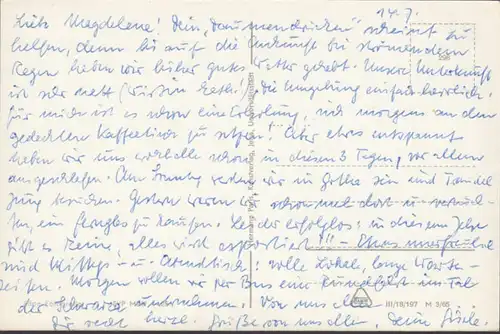 14.7.
Liebe Magdelene! Dein "Daumendrücken" scheint zu
helfen, denn bis auf die Ankunft bei strömendem
Regen haben wir bisher gutes Wetter gehabt. Unsere Unterkunft
ist sehr nett (Wirtin kath.), die Umgebung einfach herrlich!
Für mich ist es schon eine Erholung, mich morgens an den
gedeckten Kaffeetisch zu setzen! Aber etwas entspannt
haben wir uns wohl alle schon in diesen 3 Tagen, vor allem
ausgeschlafen. Am Sonntag werden wir in Gotha sein und
besuchen. Gestern waren wir schon mal dort u. versuch-
ten, ein zu kaufen. Leider erfolglos: in diesem Jahr
gibt es keine, alles wird exportiert!!! -
sind Mittags- u. Abendtisch: volle Lokale, lange Warte-
zeiten. Morgen wollen wir per Bus eine Rundfahrt ins Tal
der Schwarza unternehmen. Von uns allen
Für recht herzl. Grüße von uns allen Deine Gisela.
III/18/197 M 3/65